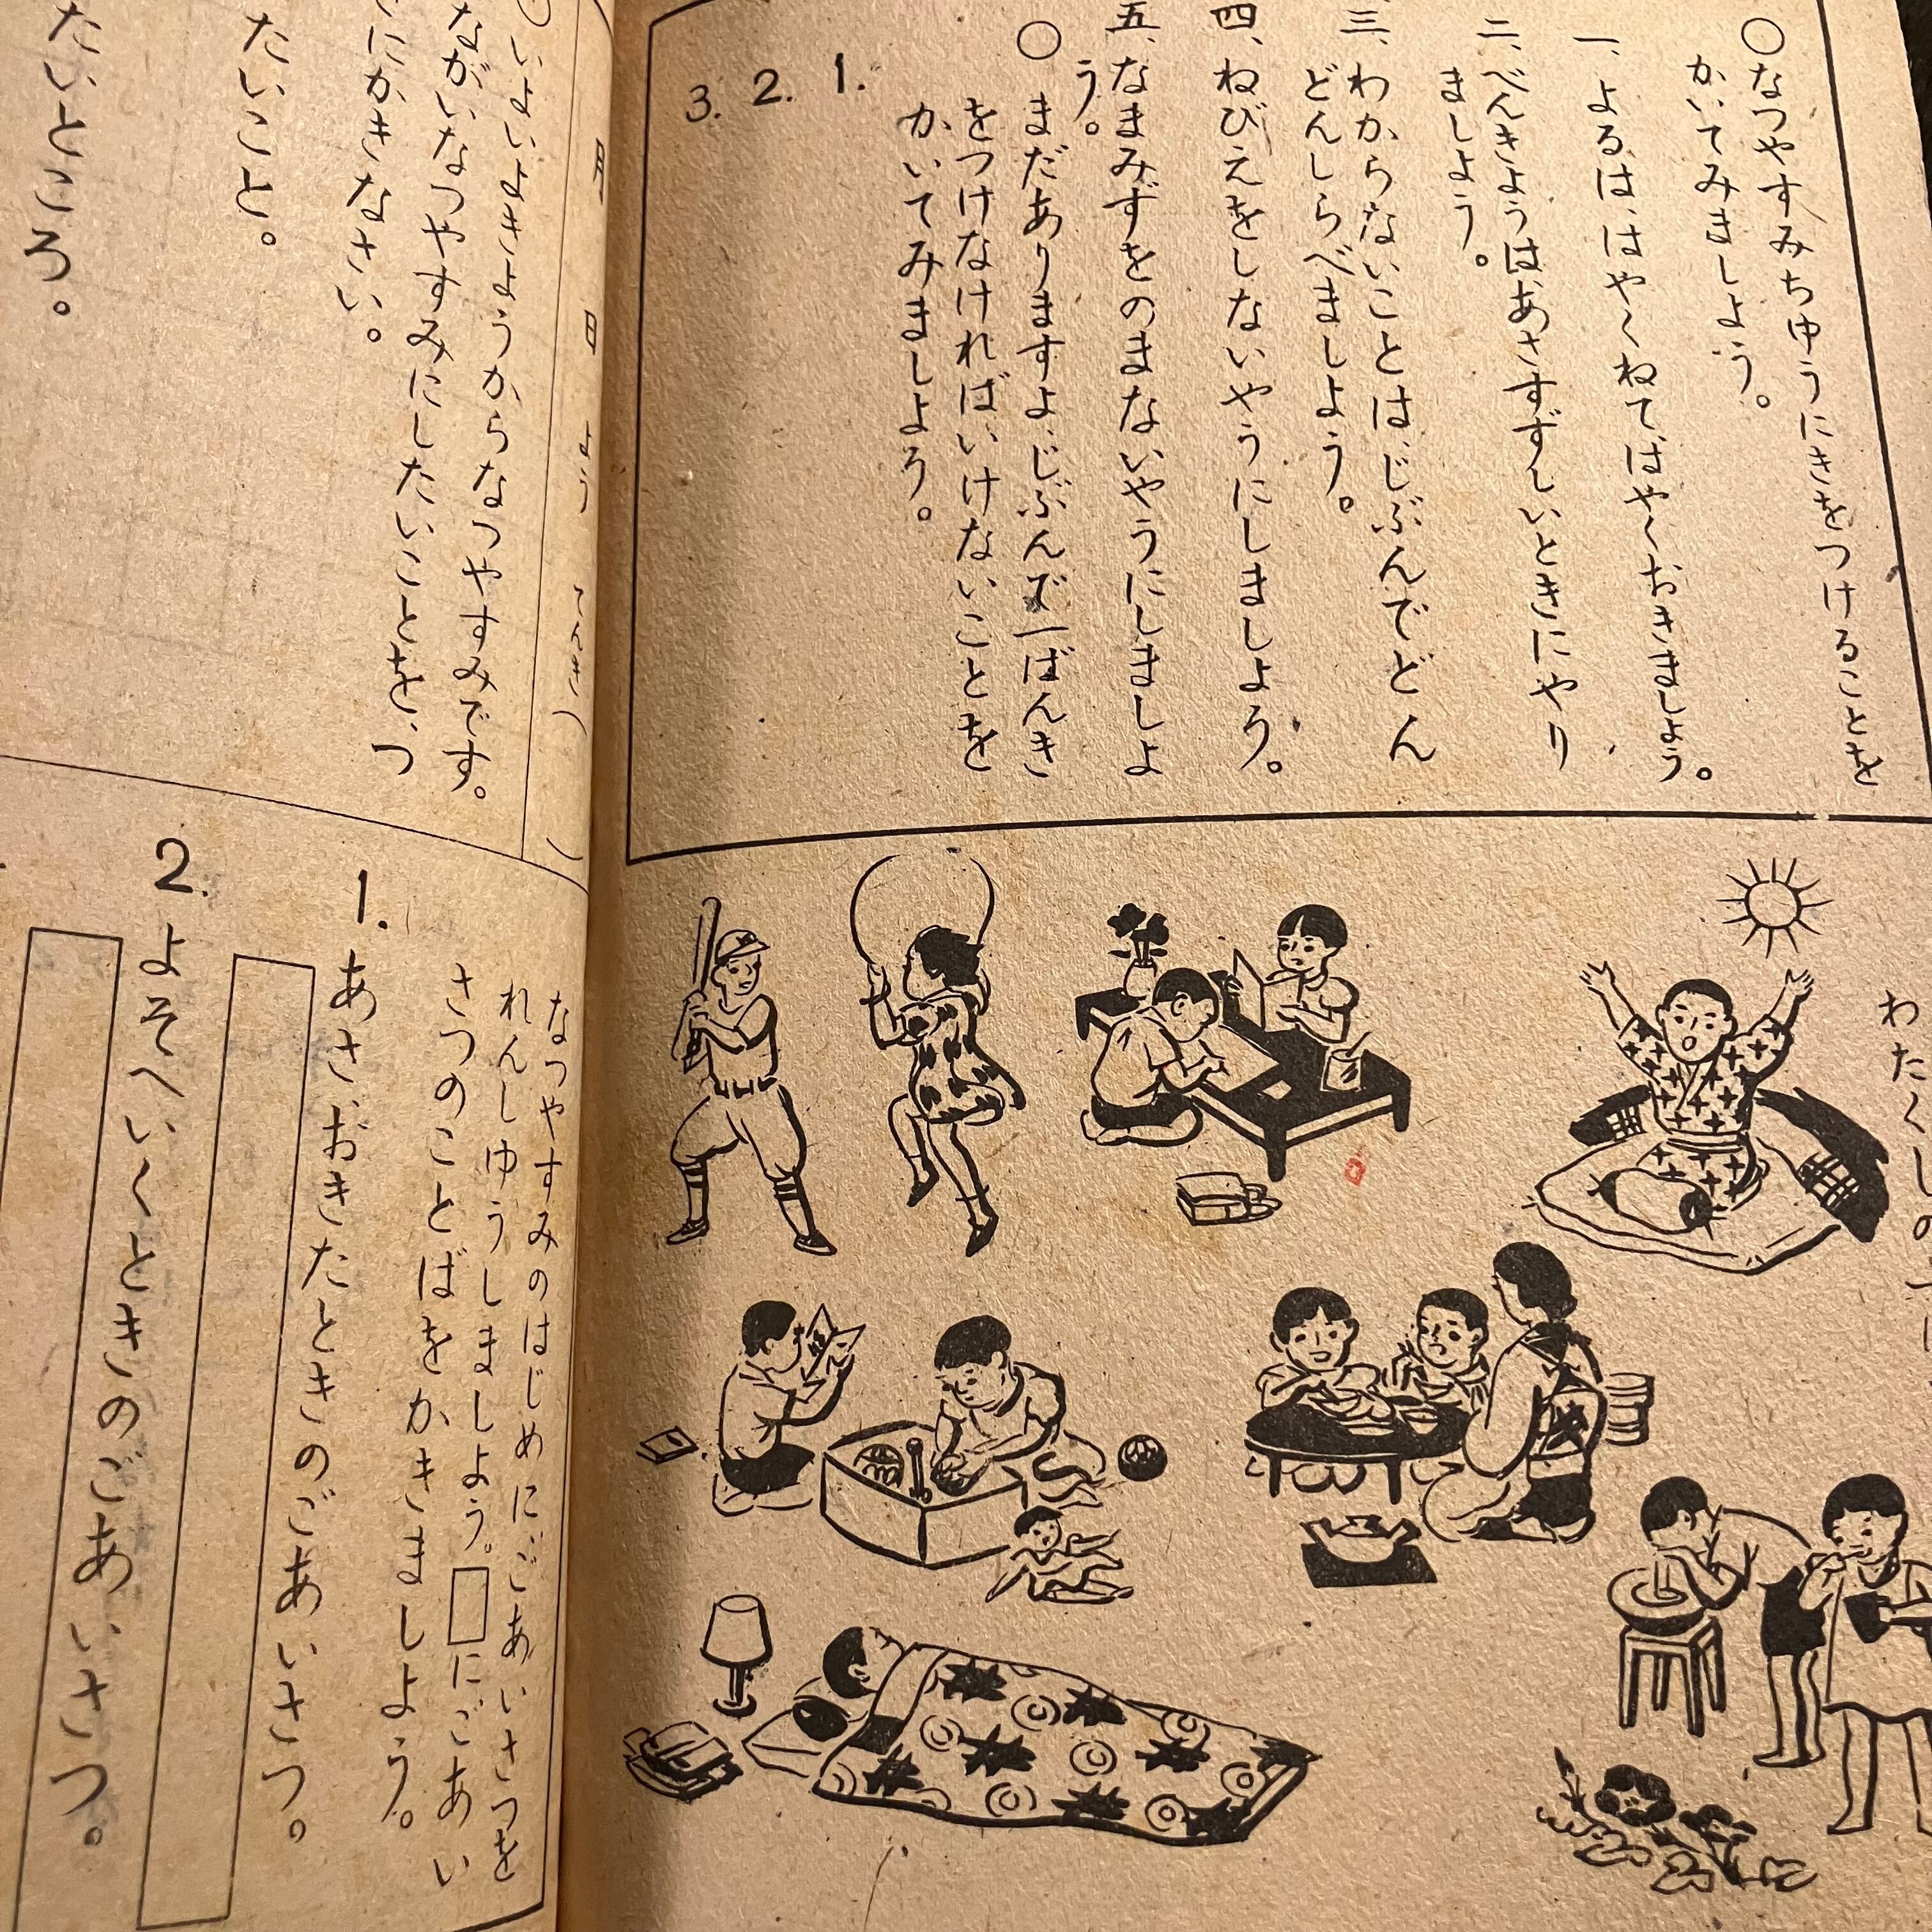 ○なつやすみちゆうにきをつけることを
かいてみましよう。
一、よるは、はやくねてはやくおきましよう。
二、べんきようは、あさすずしいときにやり
ましよう。
三、わからないことは、じぶんでどん
どんしらべましよう。
四、ねびえをしないやうにしましよう。
五、なまみずをのまないやうにしましよ
う。
○まだありますよ、じぶんで一ばんき
をつけなければいけないことを
かいてみましよう。
1.
2.
3.
わたくしの
月 日 よう てんき( )
○いよいよきようからなつやすみです。
ながいなつやすみにしたいことを、つ
にかきなさい。
たいこと。
たいところ。
なつやすみのはじめに、ごあいさつを
れんしゆうしましよう。□にごあい
さつのことばをかきましよう。
1. あさ、おきたときのごあいさつ。
2. よそへいくときのごあいさつ。